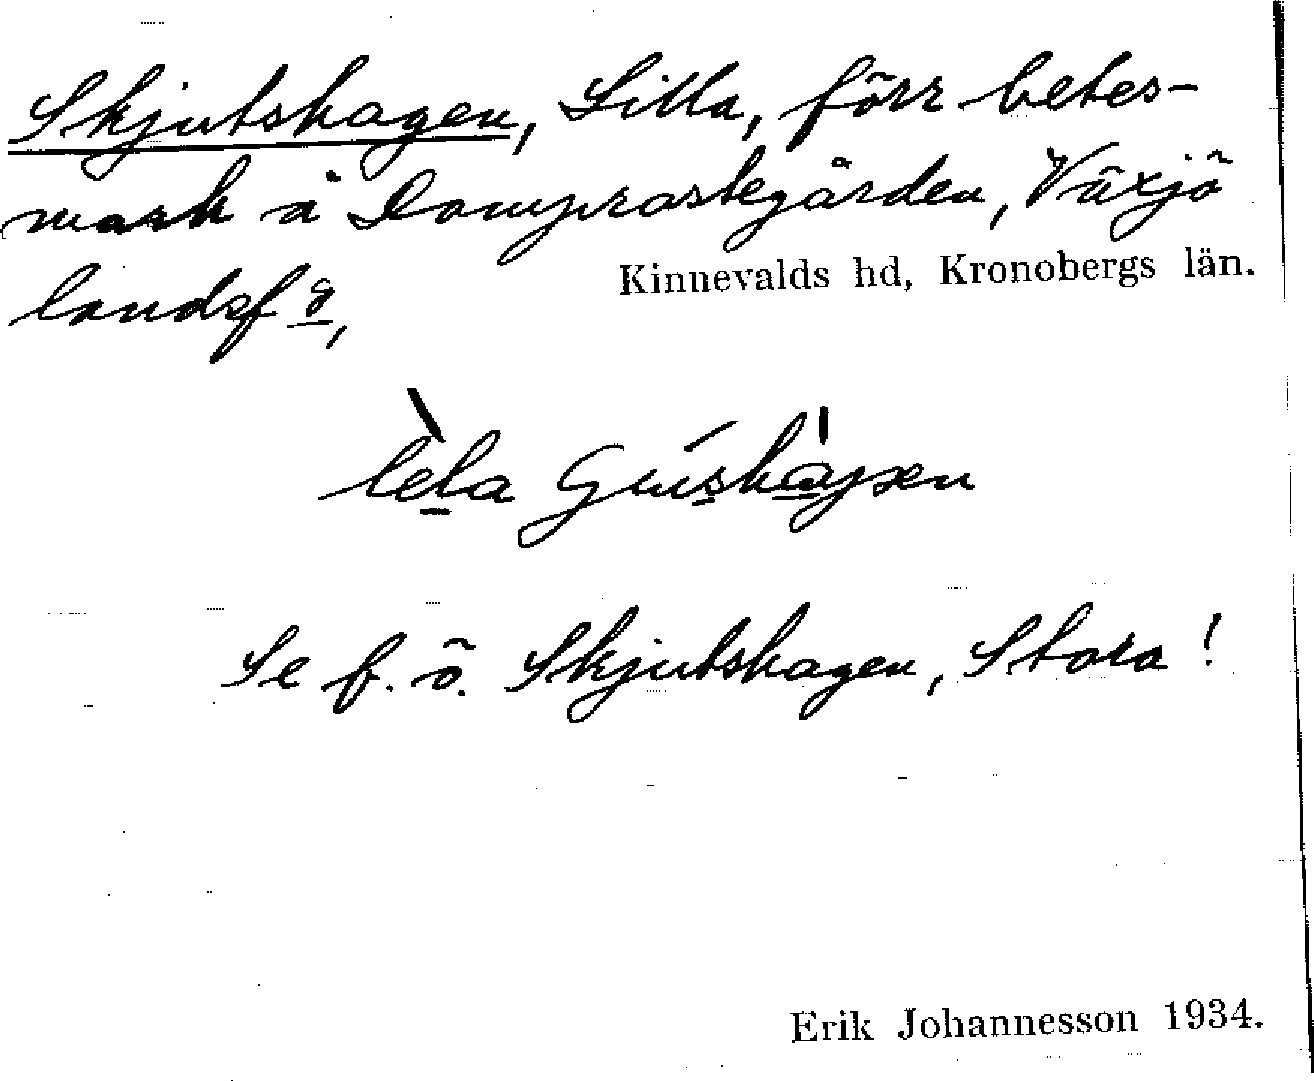 Skjutshagen, Lilla, förr betes-
mark å Domprostegården, Växjö
landsfg,
Kinnevalds hd, Kronobergs län.
Se f. ö. Skjutshagen, Stora!
Erik Johannesson 1934.